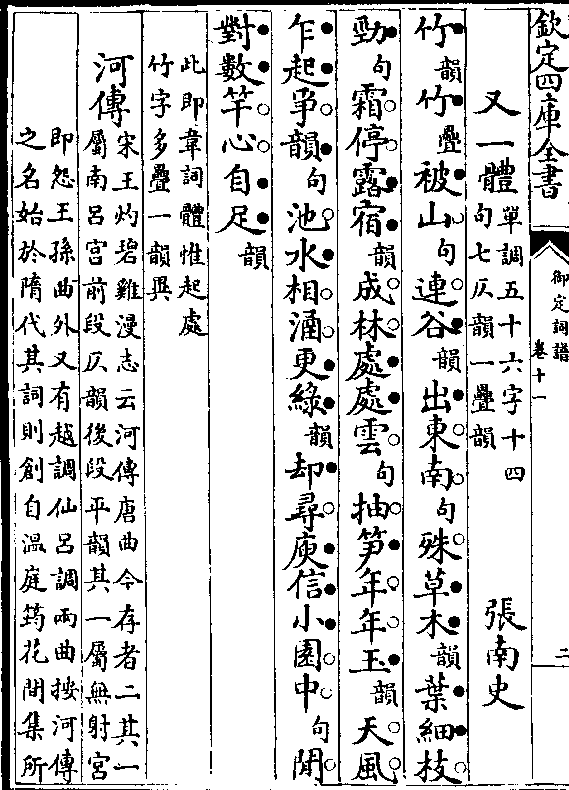 欽定四庫全書
御定詞譜
卷十一
二
又一體
單調五十六字十四
句七仄韻一疊韻
張南史
竹韻竹疊被山句連谷韻出東南句殊草木韻葉細枝
勁句霜停露宿韻成林處處雲句抽笋年年玉韻天風
乍起爭韻句池水相涵更緑韻却尋庾信小園中句閒
對數竿心自足韻
此即韋詞體惟起處
竹字多疊一韻異
河傳
宋王灼碧雞漫志云河傳唐曲今存者二其一
屬南呂宮前段仄韻後段平韻其一屬無射宮
即怨王孫曲外又有越調仙呂調兩曲按河傳
之名始於隋代其詞則創自溫庭筠花間集所